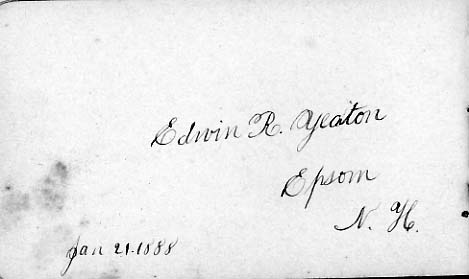 Edwin R. Yeaton
Epsom
N. H.
Jan 21. 1888